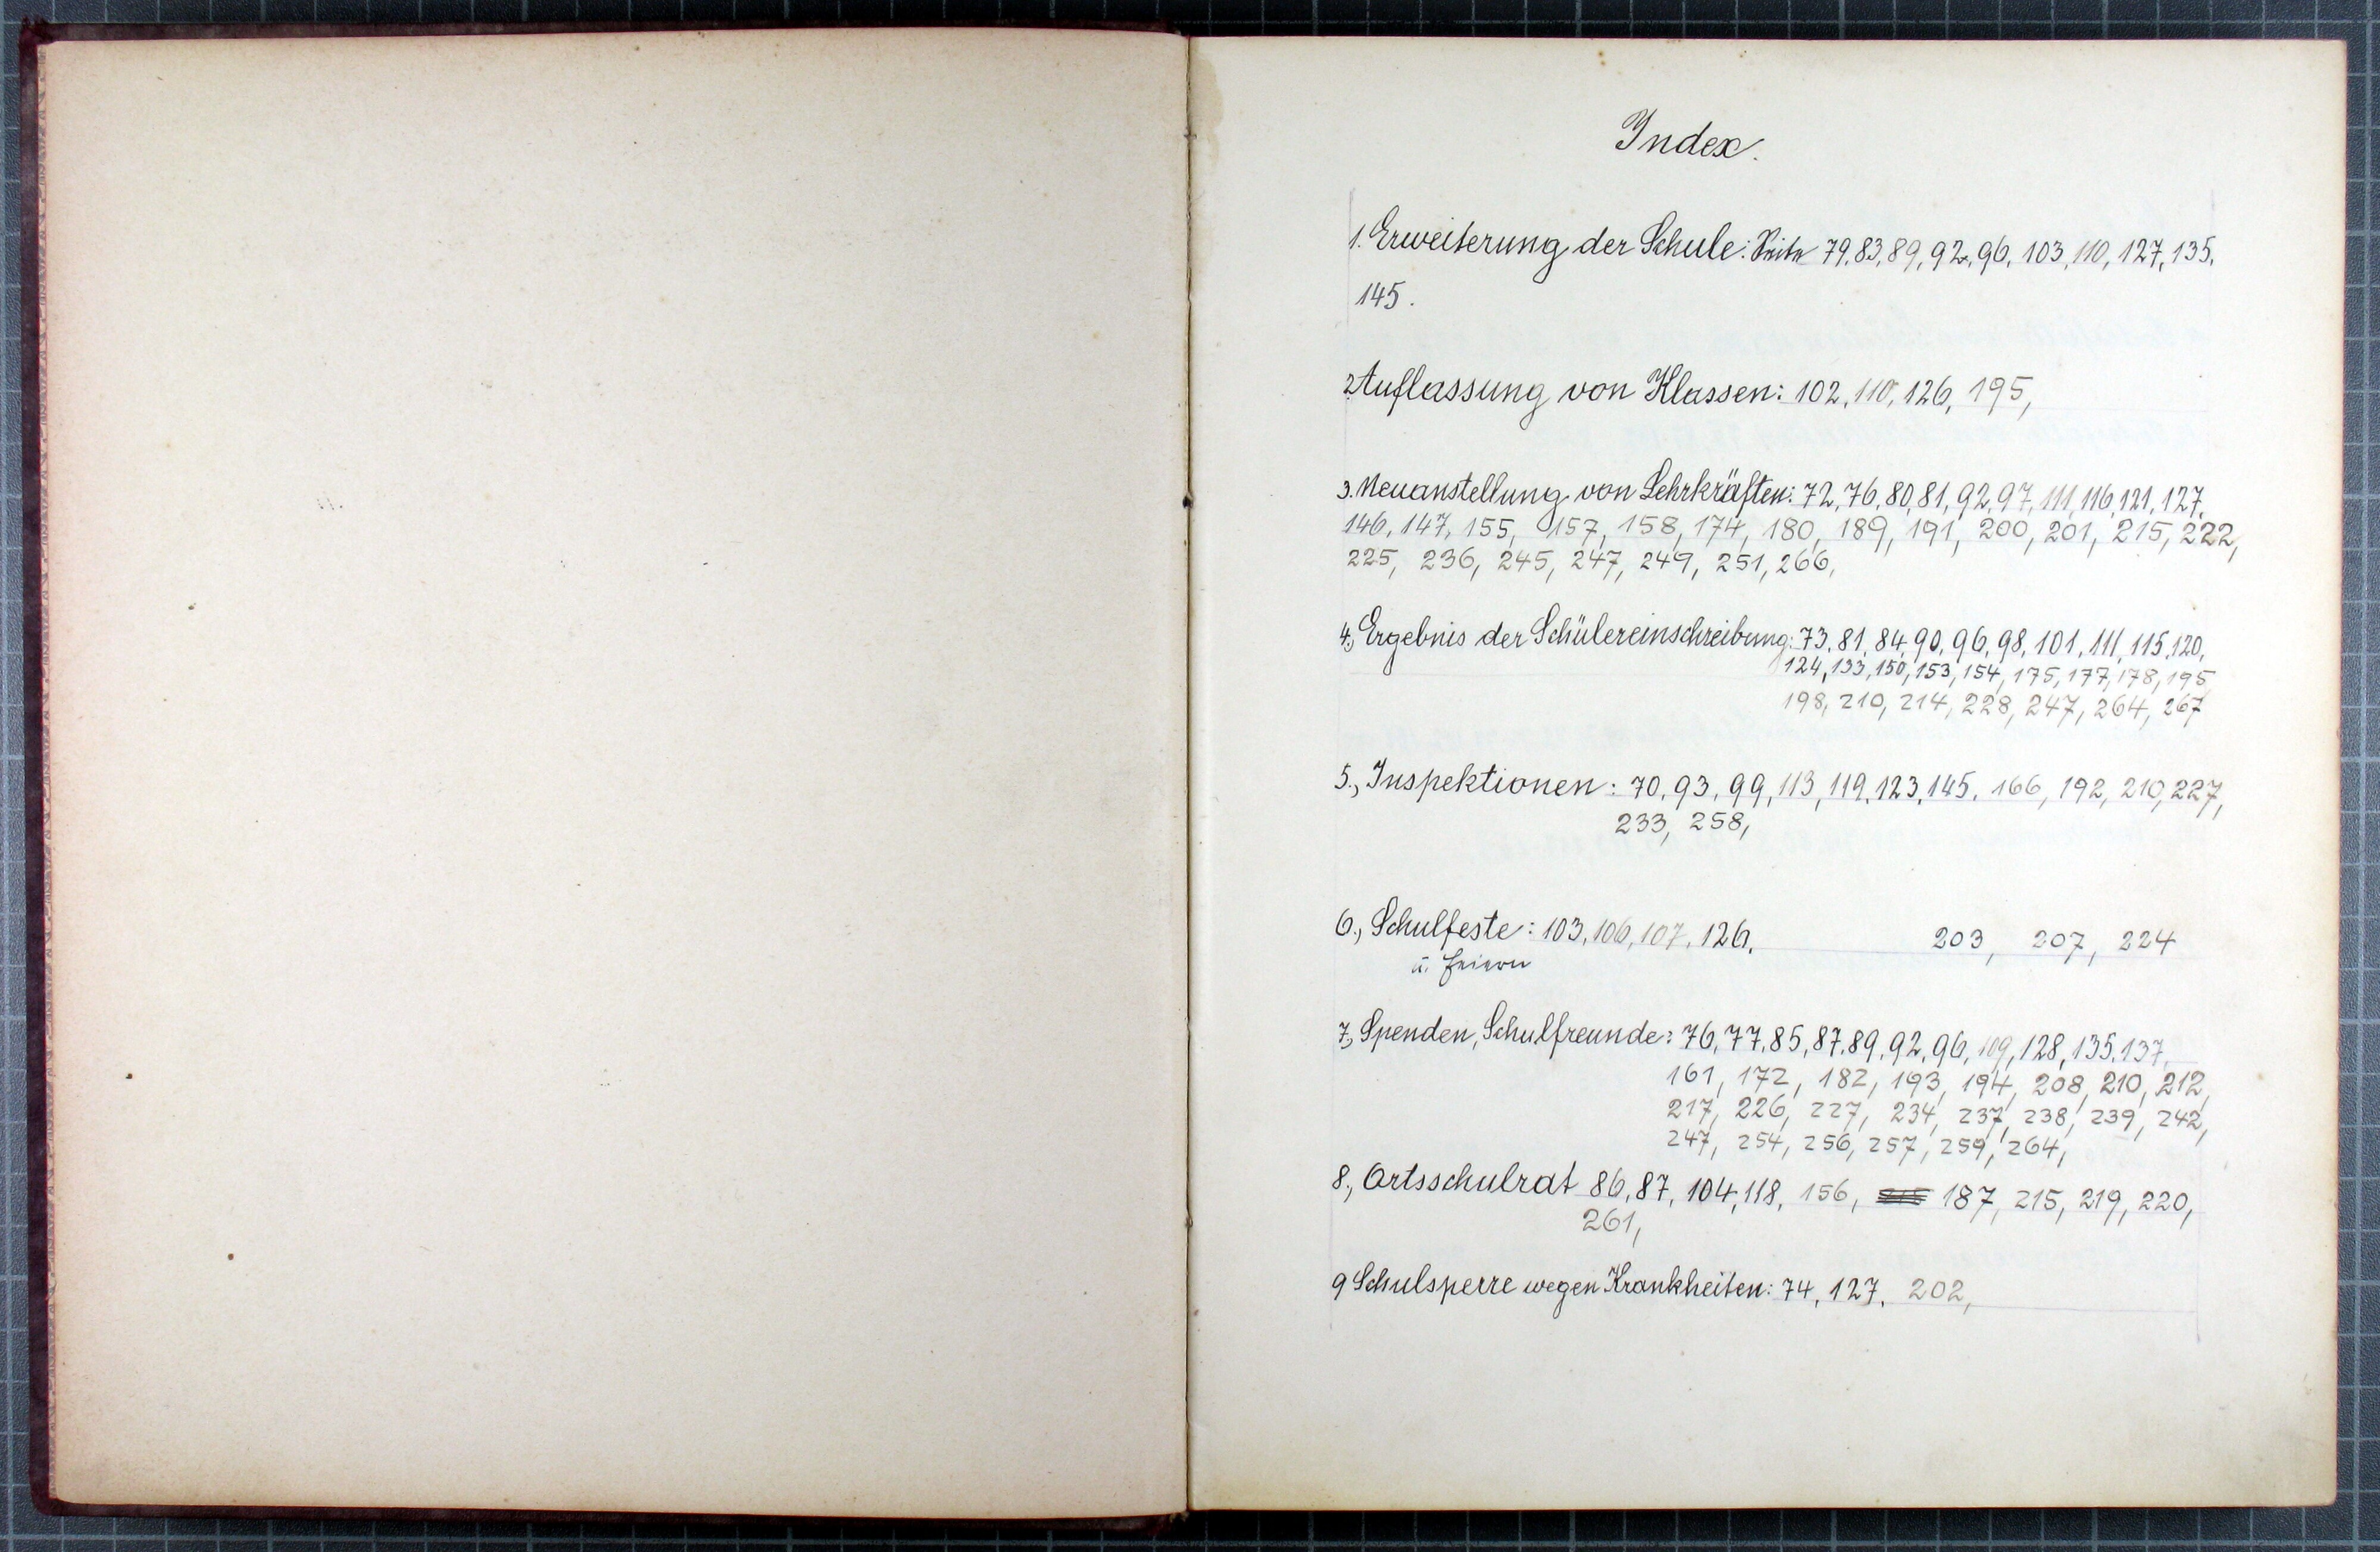 Index.
1. Erweiterung der Schule: Seite 79, 83, 89, 92, 96, 103, 110, 127, 135,
145.
2. Auflassung von Klassen: 102, 110, 126, 195,
3. Neuanstellung von Lehrkräften: 72, 76, 80, 81, 92, 97, 111, 116, 121, 127,
146, 147, 155, 157, 158, 174, 180, 189, 191, 200, 201, 215, 222,
225, 236, 245, 247, 249, 251, 266,
4., Ergebnis der Schülereinschreibung: 73, 81, 84, 90, 96, 98, 101, 111, 115, 120,
124, 133, 150, 153, 154, 175, 177, 178, 195
198, 210, 214, 228, 247, 264, 267
5., Inspektionen: 70, 93, 99, 113, 119, 123, 145, 166, 192, 210, 227,
233, 258,
6., Schulfeste: 103, 106, 107, 126, 203, 207, 224
u. Feiern
7., Spenden, Schulfreunde: 76, 77, 85, 87, 89, 92, 96, 109, 128, 135, 137,
161, 172, 182, 193, 194, 208, 210, 212,
217, 226, 227, 234, 237, 238, 239, 242,
247, 254, 256, 257, 259, 264,
8., Ortsschulrat 86, 87, 104, 118, 156, 187, 215, 219, 220,
261,
9 Schulsperre wegen Krankheiten: 74, 127, 202,